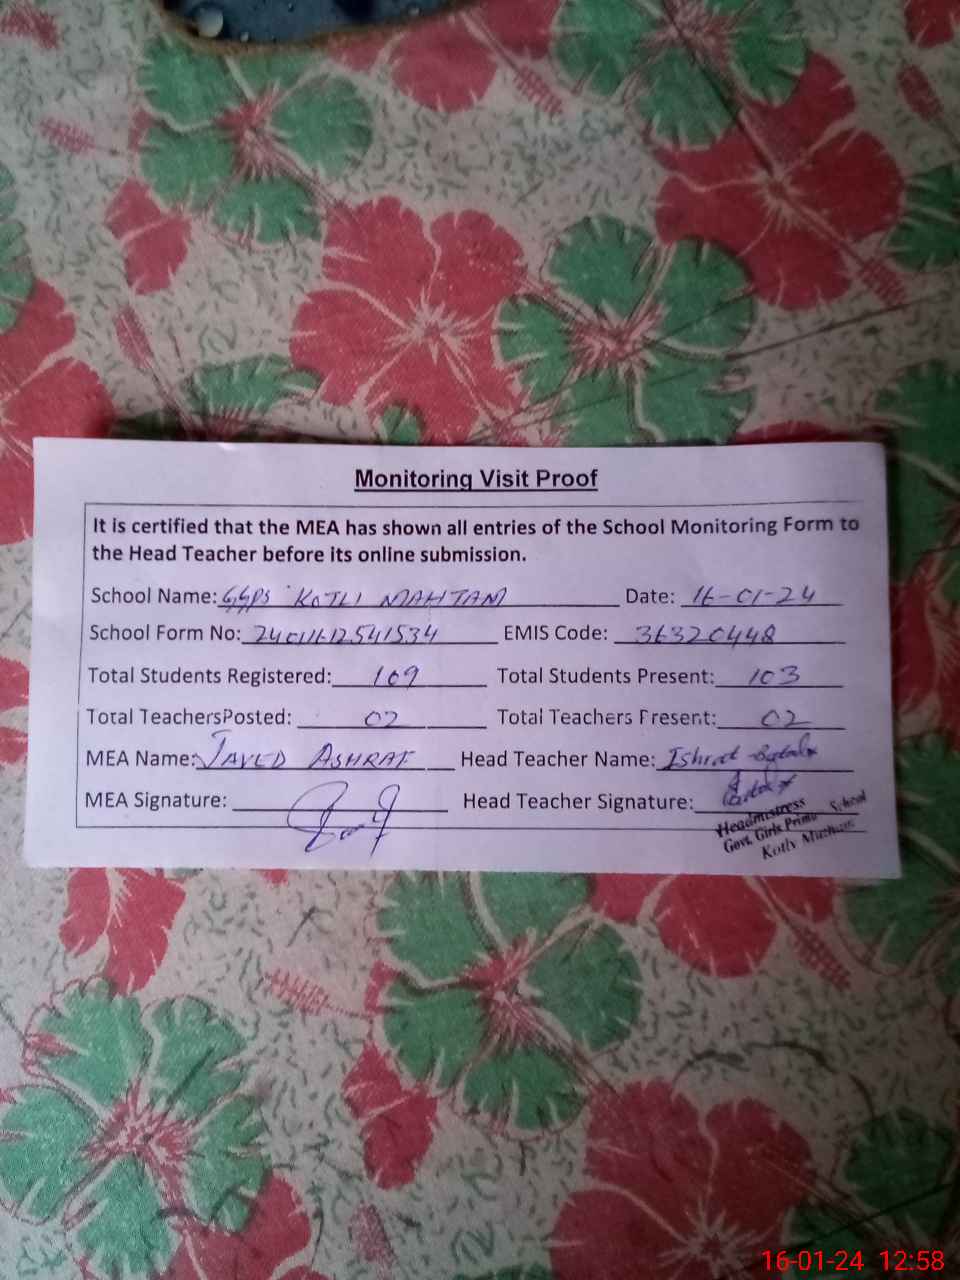 Monitoring Visit Proof
It is certified that the MEA has shown all entries of the School Monitoring Form to
the Head Teacher before its online submission.
School Name: GGPS KOTLI MAHTAM Date: 16-01-24
School Form No: 24011612541534 EMIS Code: 36320448
Total Students Registered: 109 Total Students Present: 103
Total TeachersPosted: 02 Total Teachers Present: 02
MEA Name: JAVED ASHRAF Head Teacher Name: Ishrat
MEA Signature: Head Teacher Signature:
Headmistress
Govt. Girls School
Kotly
16-01-24 12:58